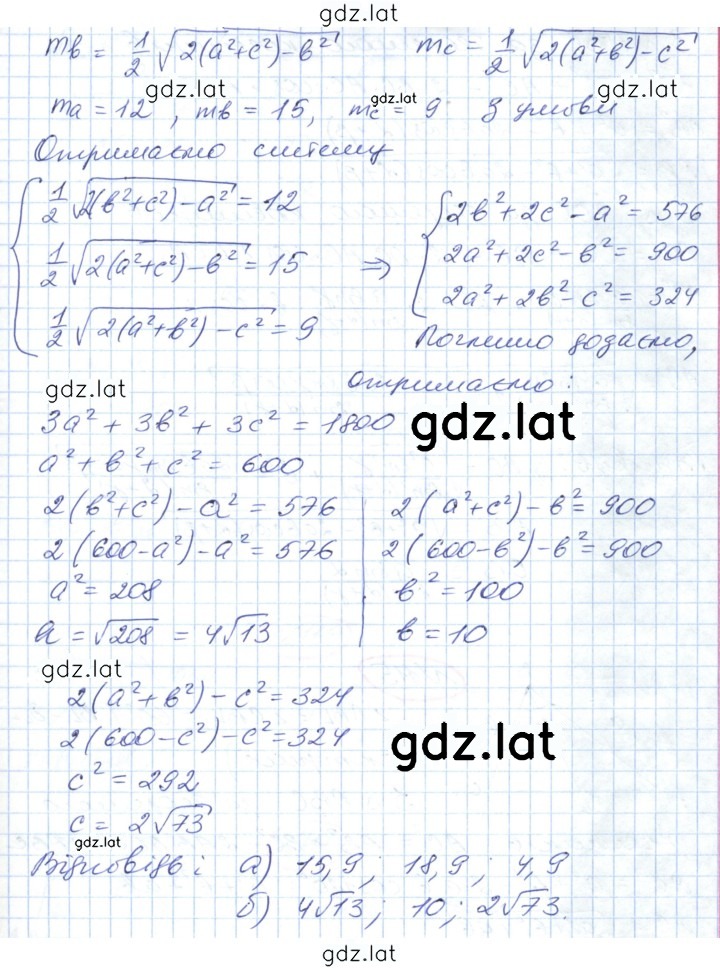 gdz.lat
mв = 1/2 √(2(a²+c²)-в²) mc = 1/2 √(2(a²+в²)-c²)
gdz.lat gdz.lat
ma = 12, mв = 15, mc = 9 З умови
gdz.lat
Отримаємо систему
1/2 √(2(в²+c²)-a²) = 12
1/2 √(2(a²+c²)-в²) = 15 ⇒
1/2 √(2(a²+в²)-c²) = 9
2в²+2c²-a² = 576
2a²+2c²-в² = 900
2a²+2в²-c² = 324
Почленно додаємо,
отримаємо:
gdz.lat
3a²+3в²+3c² = 1800
gdz.lat
a²+в²+c² = 600
2(в²+c²)-a² = 576
2(600-a²)-a² = 576
a² = 208
a = √208 = 4√13
2(a²+c²)-в² = 900
2(600-в²)-в² = 900
в² = 100
в = 10
gdz.lat
2(a²+в²)-c² = 324
2(600-c²)-c² = 324
gdz.lat
c² = 292
c = 2√73
gdz.lat
Відповідь: а) 15,9; 18,9; 4,9
б) 4√13; 10; 2√73.
gdz.lat